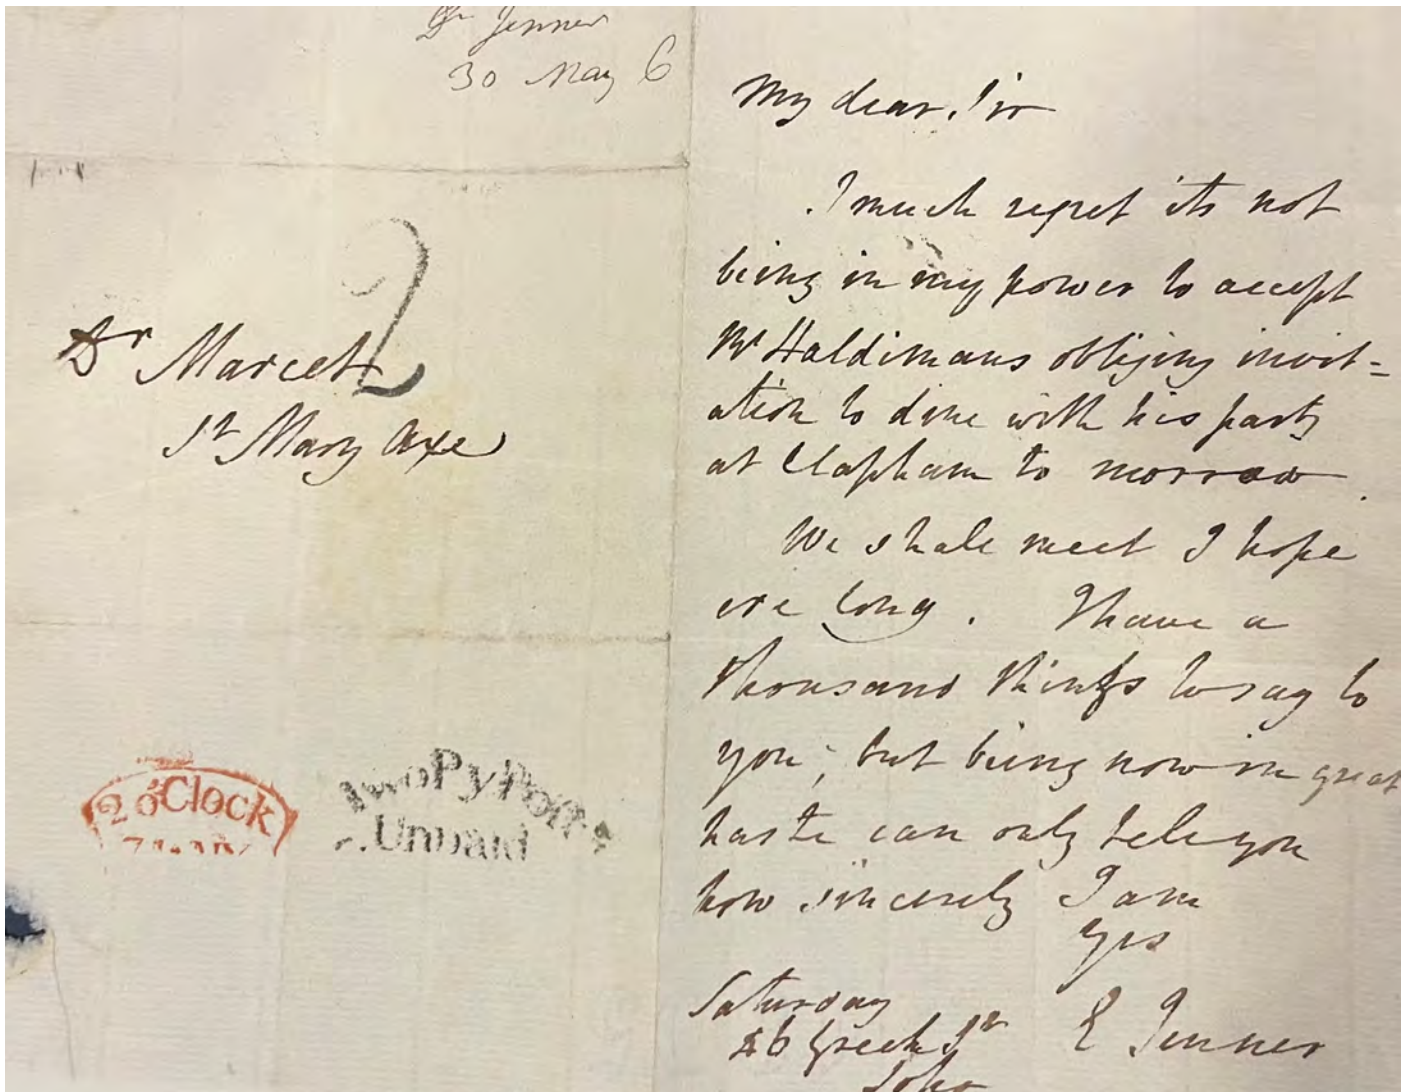 Dr Jenner
30 May 6
2
Dr Marcet
St Mary Axe
2 o'Clock
TwoPyPost
Unpaid
My dear Sir
I much regret its not
being in my power to accept
Mr Haldimans obliging invit=
ation to dine with his party
at Clapham to morrow.
We shall meet I hope
ere long. I have a
thousand things to say to
you, but being now in great
haste can only tell you
how sincerely I am
yrs
E Jenner
Saturday
Greek St
Soho